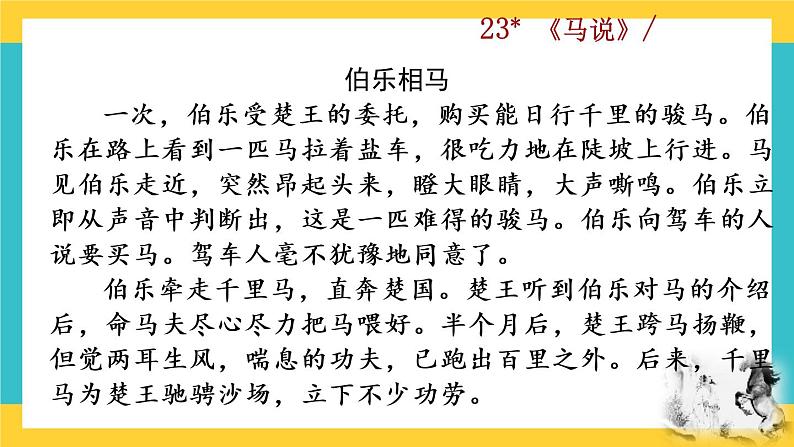 23* 《马说》/
伯乐相马
一次，伯乐受楚王的委托，购买能日行千里的骏马。伯
乐在路上看到一匹马拉着盐车，很吃力地在陡坡上行进。马
见伯乐走近，突然昂起头来，瞪大眼睛，大声嘶鸣。伯乐立
即从声音中判断出，这是一匹难得的骏马。伯乐向驾车的人
说要买马。驾车人毫不犹豫地同意了。
伯乐牵走千里马，直奔楚国。楚王听到伯乐对马的介绍
后，命马夫尽心尽力把马喂好。半个月后，楚王跨马扬鞭，
但觉两耳生风，喘息的功夫，已跑出百里之外。后来，千里
马为楚王驰骋沙场，立下不少功劳。